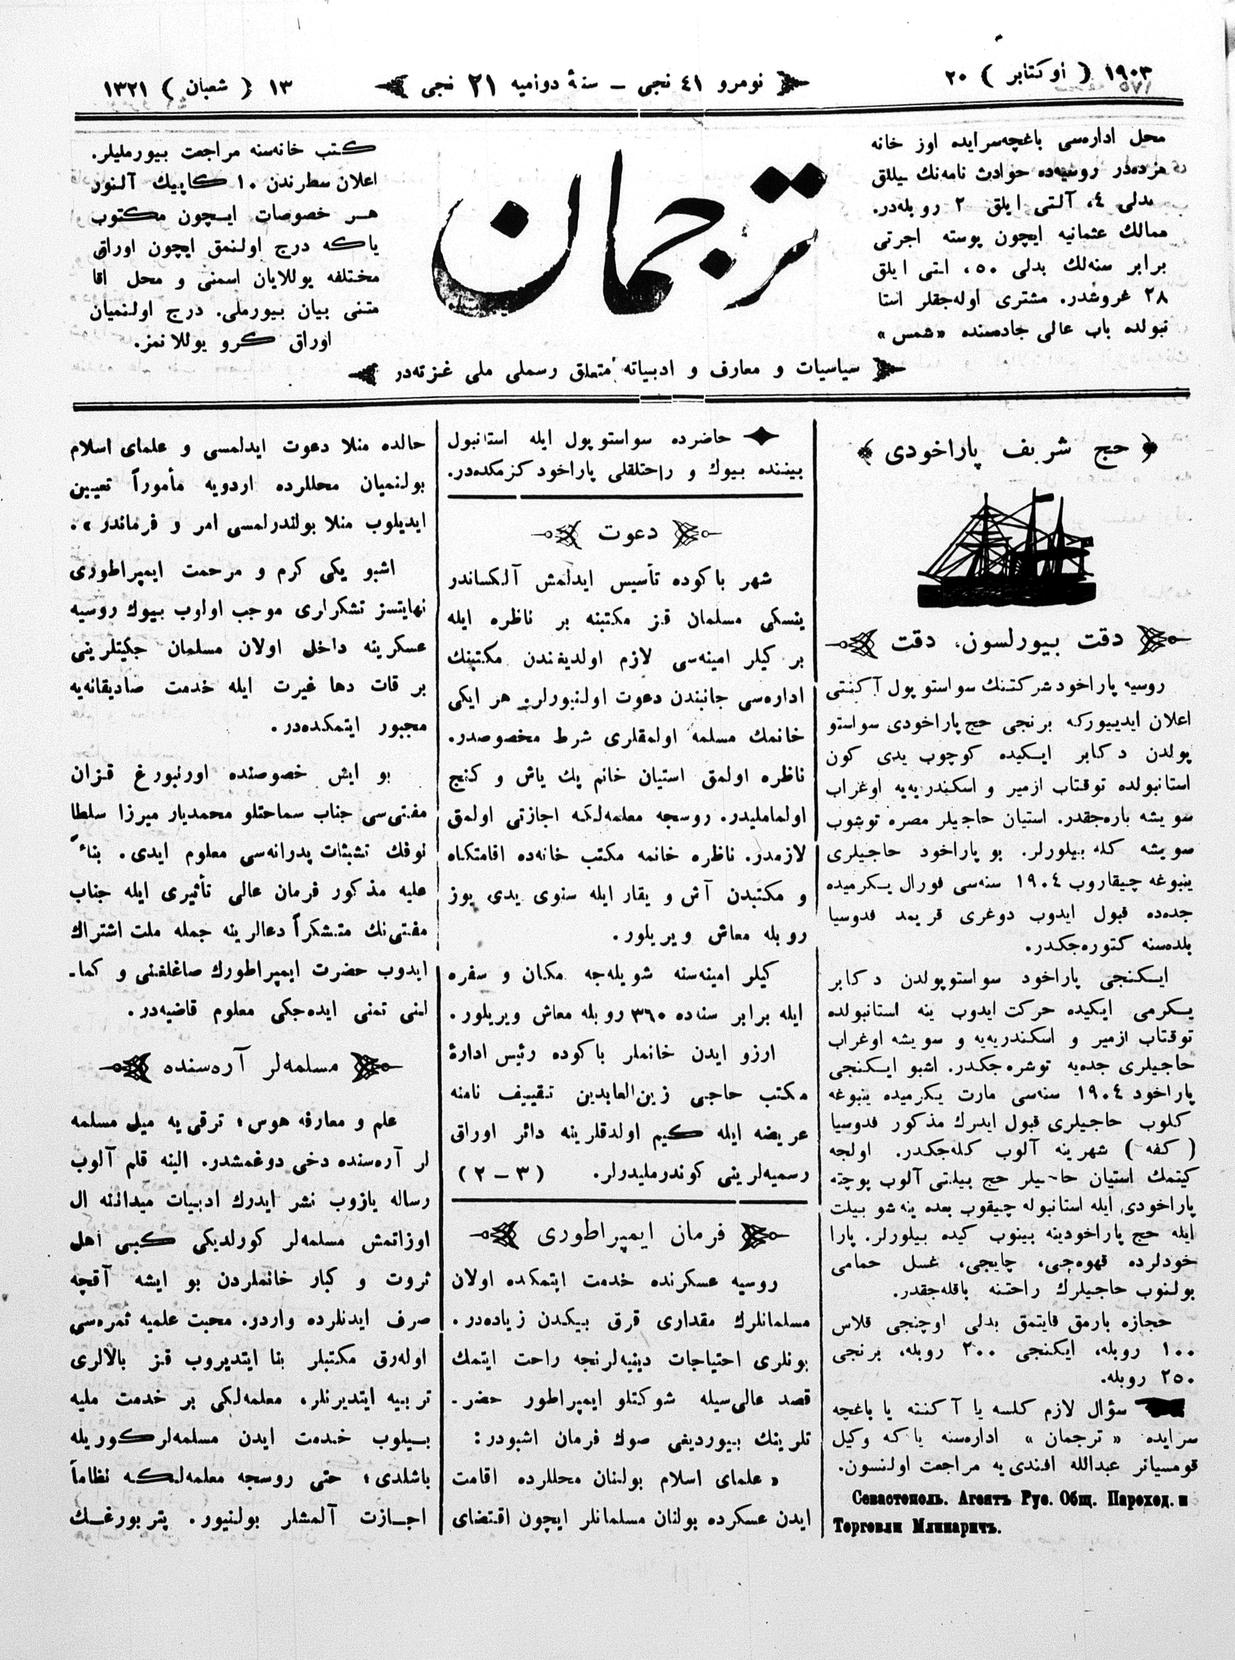 ١٩٠٣ ( اوكتابر ) ٢٠
نومرو ٤١ نجى – سنهٔ دواميه ٢١ نجى
١٣ ( شعبان ) ١٣٢١
محل اداره‌سى باغچه‌سرايده اوز خانه
مزده‌در روسيه‌ده حوادث نامه‌نك ييللق
بدلى ٤، آلتى ايلق ٢ روبله‌در.
ممالك عثمانيه ايچون پوسته اجرتى
برابر سنه‌لك بدلى ٥٠، التى ايلق
٢٨ غروشدر. مشترى اوله‌جقلر استا
نبولده باب عالى جاده‌سنده «شمس»
كتب خانه‌سنه مراجعت بيورمليلر.
اعلان سطرندن ١٠ كاپيك آلنور
هر خصوصات ايچون مكتوب
ياكه درج اولنمق ايچون اوراق
مختلفه يوللايان اسمنى و محل اقا
متنى بيان بيورملى. درج اولنميان
اوراق كرو يوللانمز.
ترجمان
سياسيات و معارف و ادبياته متعلق رسملى ملى غزته‌در
حج شريف پاراخودى
دقت بيورلسون، دقت
روسيه پاراخود شركتنك سواستوپول آكنتى
اعلان ايدييوركه برنجى حج پاراخودى سواستو
پولدن دكابر ايكيده كوچوب يدى كون
استانبولده توقتاب ازمير و اسكندريه‌يه اوغراب
سويشه باره‌جقدر. استيان حاجيلر مصره توشوب
سويشه كله بيلورلر. بو پاراخود حاجيلرى
ينبوغه چيقاروب ١٩٠٤ سنه‌سى فورال يكرميده
جده‌ده قبول ايدوب دوغرى قريمده فدوسيا
بلده‌سنه كتوره‌جكدر.
ايكنجى پاراخود سواستوپولدن دكابر
يكرمى ايكيده حركت ايدوب ينه استانبولده
توقتاب ازمير و اسكندريه‌يه و سويشه اوغراب
حاجيلرى جده‌يه توشره‌جكدر. اشبو ايكنجى
پاراخود ١٩٠٤ سنه‌سى مارت يكرميده ينبوغه
كلوب حاجيلرى قبول ايدرك مذكور فدوسيا
( كفه ) شهرينه آلوب كله‌جكدر. اولجه
كيتمك استيان حاجيلر حج بيلتى آلوب پوچته
پاراخودى ايله استانبوله چيقوب بعده ينه شو بيلت
ايله حج پاراخودينه بينوب كيده بيلورلر. پارا
خودلرده قهوه‌جى، چايجى، غسل حمامى
بولنوب حاجيلرك راحتنه باقله‌جقدر.
حجازه بارمق قايتمق بدلى اوچنجى قلاس
١٠٠ روبله، ايكنجى ٢٠٠ روبله، برنجى
٢٥٠ روبله.
سؤال لازم كلسه يا آكنته يا باغچه
سرايده « ترجمان » اداره‌سنه ياكه وكيل
قومسيانر عبدالله افندى‌يه مراجعت اولنسون.
Севастополь. Агентъ Рус. Общ. Пароход. и
Торговли Млинаричъ.
حاضرده سواستوپول ايله استانبول
بيننده بيوك و راحتلقلى پاراخود كزمكده‌در.
دعوت
شهر باكوده تأسيس ايدلمش آلكساندر
ينسكى مسلمان قز مكتبنه بر ناظره ايله
بر كيلر امينه‌سى لازم اولديغندن مكتبنك
اداره‌سى جانبندن دعوت اولنيورلر. هر ايكى
خانمك مسلمه اولمقلرى شرط مخصوصدر.
ناظره اولمق استيان خانم پك ياش و كنج
اولماملیدر. روسجه معلمه‌لكه اجازتى اولمق
لازمدر. ناظره خانمه مكتب خانه‌ده اقامتكاه
و مكتبدن آش و يقار ايله سنوى يدى يوز
روبله معاش ويريلور.
كيلر امينه‌سنه شويله‌جه مكان و سفره
ايله برابر سنه‌ده ٣٦٠ روبله معاش ويريلور.
ارزو ايدن خانملر باكوده رئيس ادارهٔ
مكتب حاجى زين‌العابدين تقييف نامنه
عريضه ايله كيم اولدقلرينه دائر اوراق
رسميه‌لرينى كوندرمليدرلر. ( ٣ – ٢ )
فرمان ايمپراطورى
روسيه عسكرنده خدمت ايتمكده اولان
مسلمانلرك مقدارى قرق بيكدن زياده‌در.
بونلرى احتياجات دينيه‌لرنجه راحت ايتمك
قصد عالى‌سيله شوكتلو ايمپراطور حضر-
تلرينك بيورديغى صوك فرمان اشبودر:
« علماى اسلام بولنان محللرده اقامت
ايدن عسكرده بولنان مسلمانلر ايچون اقتضاى
حالده منلا دعوت ايدلمسى و علماى اسلام
بولنميان محللرده اردويه مأموراً تعيين
ايديلوب منلا بولندرلمسى امر و فرماندر».
اشبو يكى كرم و مرحمت ايمپراطورى
نهايتسز تشكرارى موجب اولوب بيوك روسيه
عسكرينه داخل اولان مسلمان جكيتلرينى
بر قات دها غيرت ايله خدمت صاديقانه‌يه
مجبور ايتمكده‌در.
بو ايش خصوصنده اورنبورغ قزان
مفتى‌سى جناب سماحتلو محمديار ميرزا سلطا
نوفك تشبثات پدرانه‌سى معلوم ايدى. بناءً
عليه مذكور فرمان عالى تأثيرى ايله جناب
مفتى‌نك متشكراً دعالرينه جمله ملت اشتراك
ايدوب حضرت ايمپراطورك صاغلغنى و كما-
لنى تمنى ايده‌جكى معلوم قاضيه‌در.
مسلمه‌لر آره‌سنده
علم و معارفه هوس، ترقى يه ميل مسلمه
لر آره‌سنده دخى دوغمشدر. الينه قلم آلوب
رساله يازوب نشر ايدرك ادبيات ميداننه ال
اوزاتمش مسلمه‌لر كورلديكى كبى اهل
ثروت و كبار خانملردن بو ايشه آقچه
صرف ايدنلرده واردر. محبت علميه ثمره‌سى
اوله‌رق مكتبلر بنا ايتديروب قز بالالرى
تربيه ايتديرنلر، معلمه‌لكى بر خدمت مليه
بيلوب خدمت ايدن مسلمه‌لر كوريله
باشلدى؛ حتى روسجه معلمه‌لكه نظاماً
اجازت آلمشلر بولنيور. پتربورغك